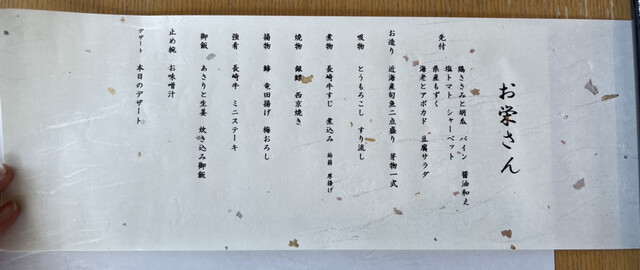 お栄さん
先付 鶏ささみと胡瓜 パイン 醤油和え
塩トマト シャーベット
県産もずく
海老とアボカド 豆腐サラダ
お造り 近海旬魚二点盛り 芽物一式
吸物 とうもろこし すり流し
煮物 長崎牛すじ 煮込み 蒟蒻 厚揚げ
焼物 銀鱈 西京焼き
揚物 鱧 竜田揚げ 梅おろし
強肴 長崎牛 ミニステーキ
御飯 あさりと生姜 炊き込み御飯
止め椀 お味噌汁
デザート 本日のデザート